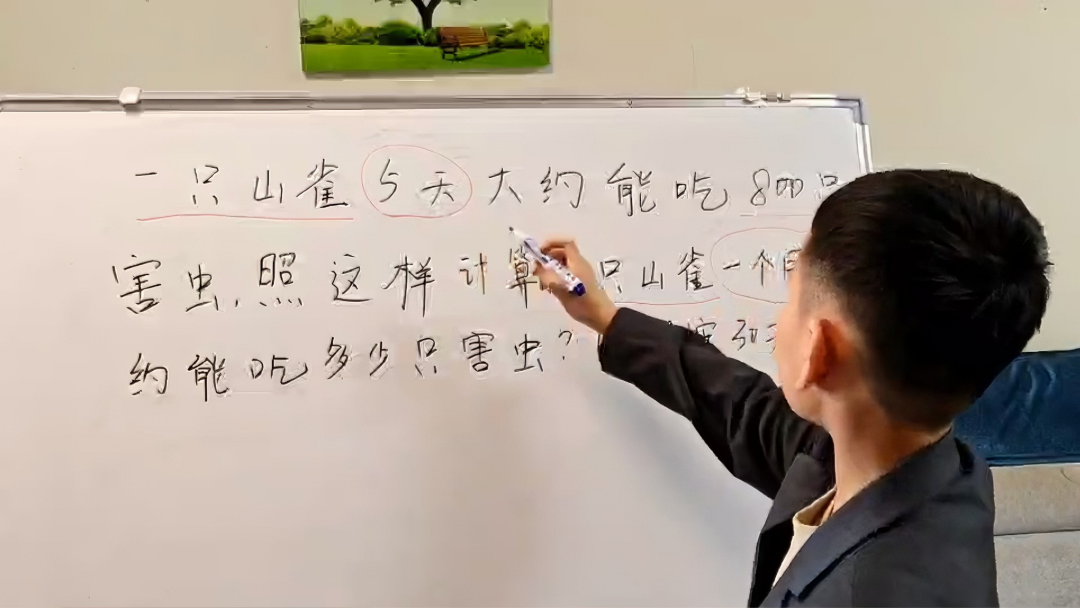 一只山雀5天大约能吃800只
害虫,照这样计算,只山雀一个
约能吃多少只害虫?30天